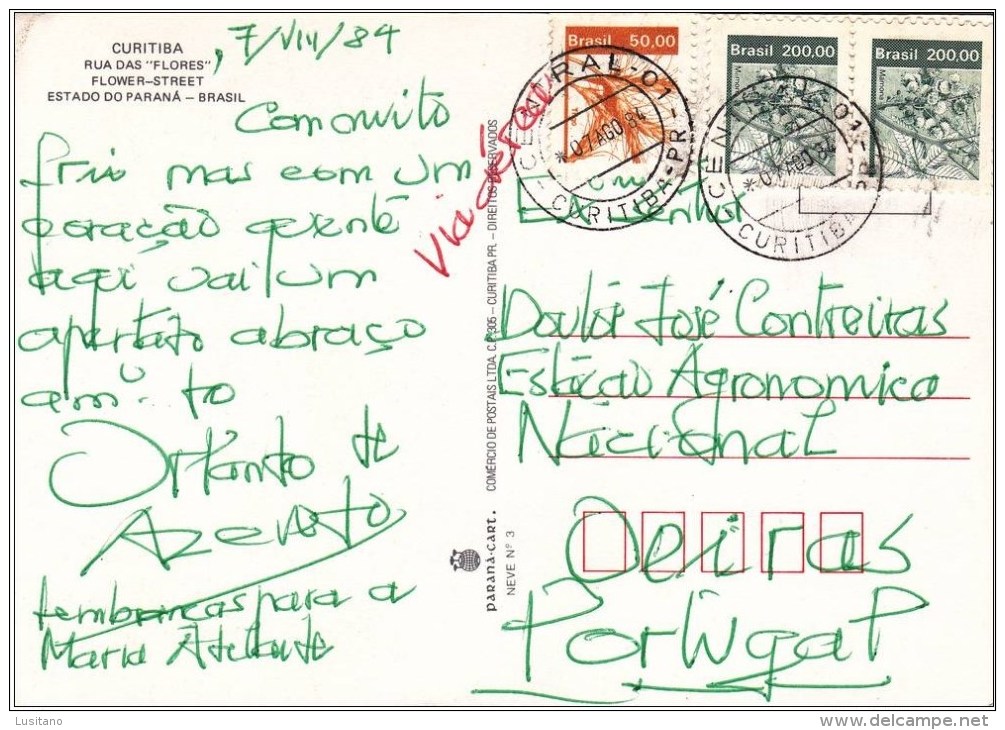 CURITIBA
RUA DAS "FLORES"
FLOWER-STREET
ESTADO DO PARANÁ - BRASIL
, 7/VIII/84
Com muito
frio mas com um
coração quente
aqui vai um
apertado abraço
amº. to
Orlando de
Azevedo
lembranças para a
Maria Adelaide
Via aérea
Brasil 50,00
Brasil 200,00
Brasil 200,00
CENTRAL-01
07 AGO 84
CURITIBA-PR
CENTRAL-01
07 AGO 84
CURITIBA
Exmº Senhor
Doutor José Contreiras
Estação Agronomica
Nacional
Oeiras
Portugal
COMÉRCIO DE POSTAIS LTDA. C.P. 305 - CURITIBA PR. - DIREITOS RESERVADOS
paraná-cart.
NEVE Nº 3
Lusitano
www.delcampe.net